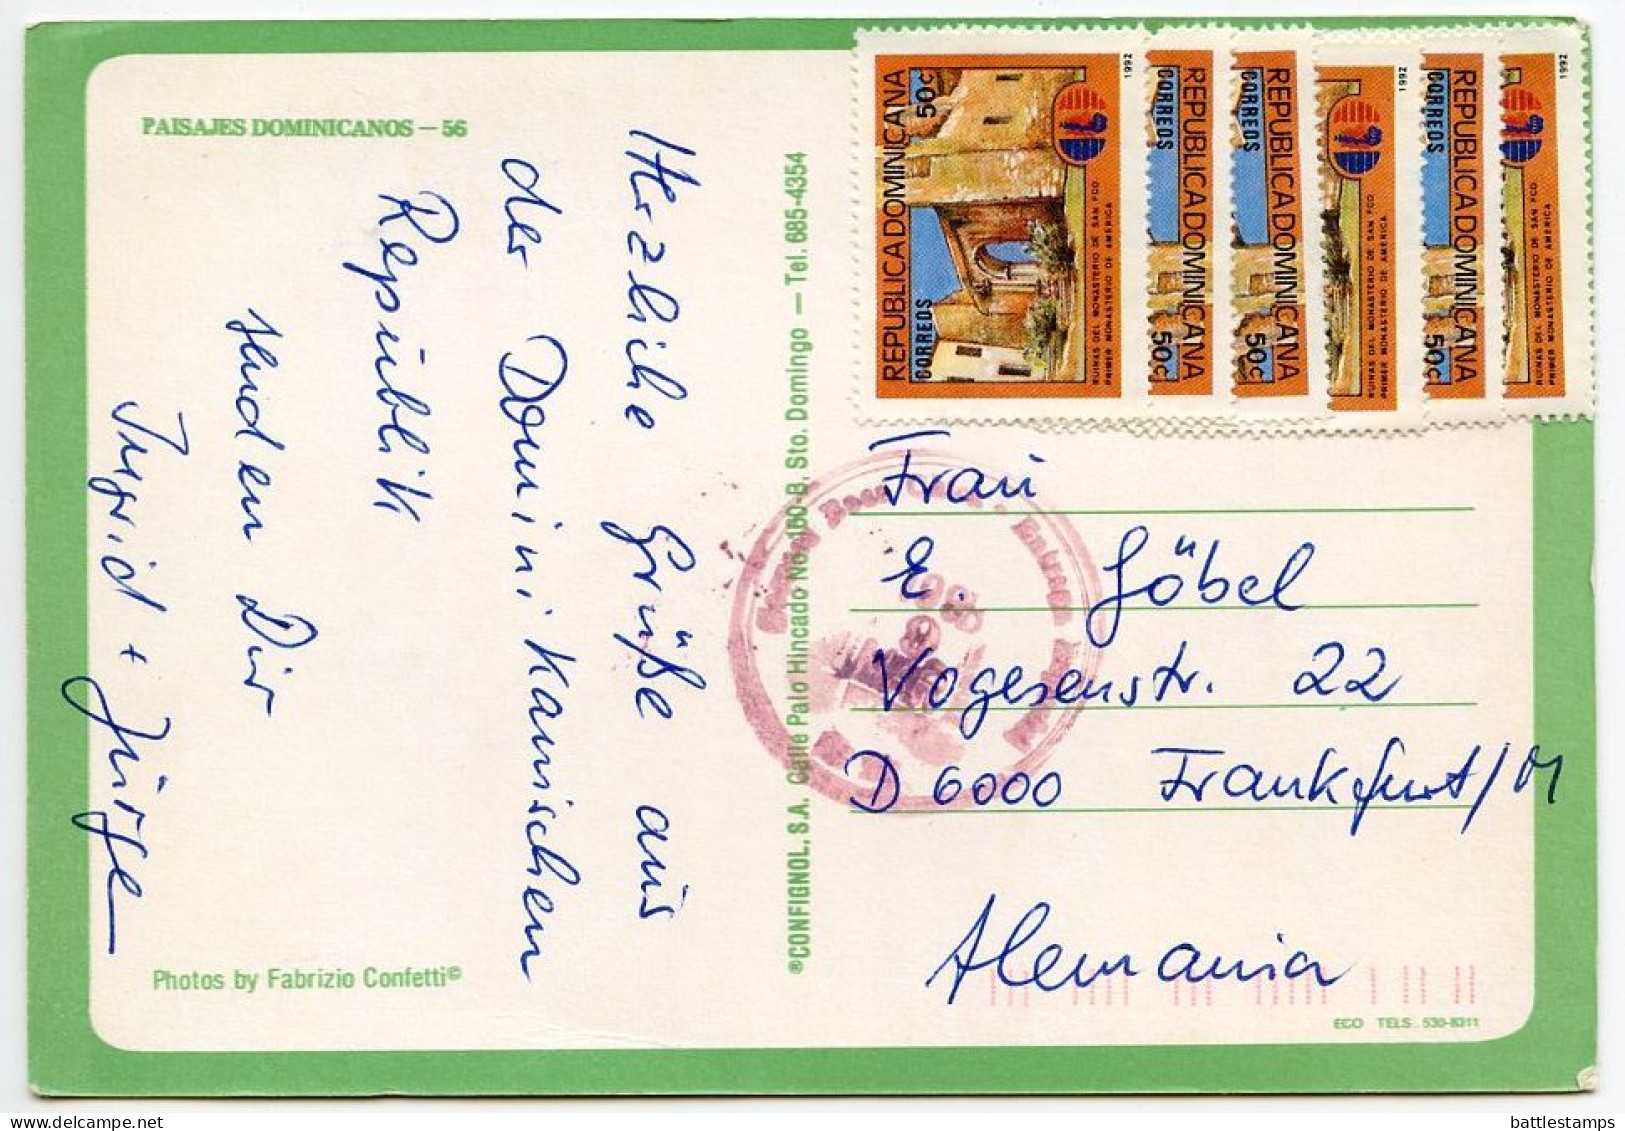 PAISAJES DOMINICANOS — 56
Herzliche Grüße aus
der Dominikanischen
Republik
senden Dir
Ingrid + Jürgen
Photos by Fabrizio Confetti©
®CONFIGNOL, S.A. Calle Palo Hincado No. 160-B, Sto. Domingo — Tel. 685-4354
REPUBLICA DOMINICANA
CORREOS
50¢
RUINAS DEL MONASTERIO DE SAN FCO.
PRIMER MONASTERIO DE AMERICA
1992
REPUBLICA DOMINICANA
CORREOS
50¢
REPUBLICA DOMINICANA
CORREOS
50¢
RUINAS DEL MONASTERIO DE SAN FCO.
PRIMER MONASTERIO DE AMERICA
1992
REPUBLICA DOMINICANA
CORREOS
50¢
RUINAS DEL MONASTERIO DE SAN FCO.
PRIMER MONASTERIO DE AMERICA
1992
Frau
E. Göbel
Vogesenstr. 22
D 6000 Frankfurt/M
Alemania
ECO TELS. 530-8311
delcampe.net
battlestamps